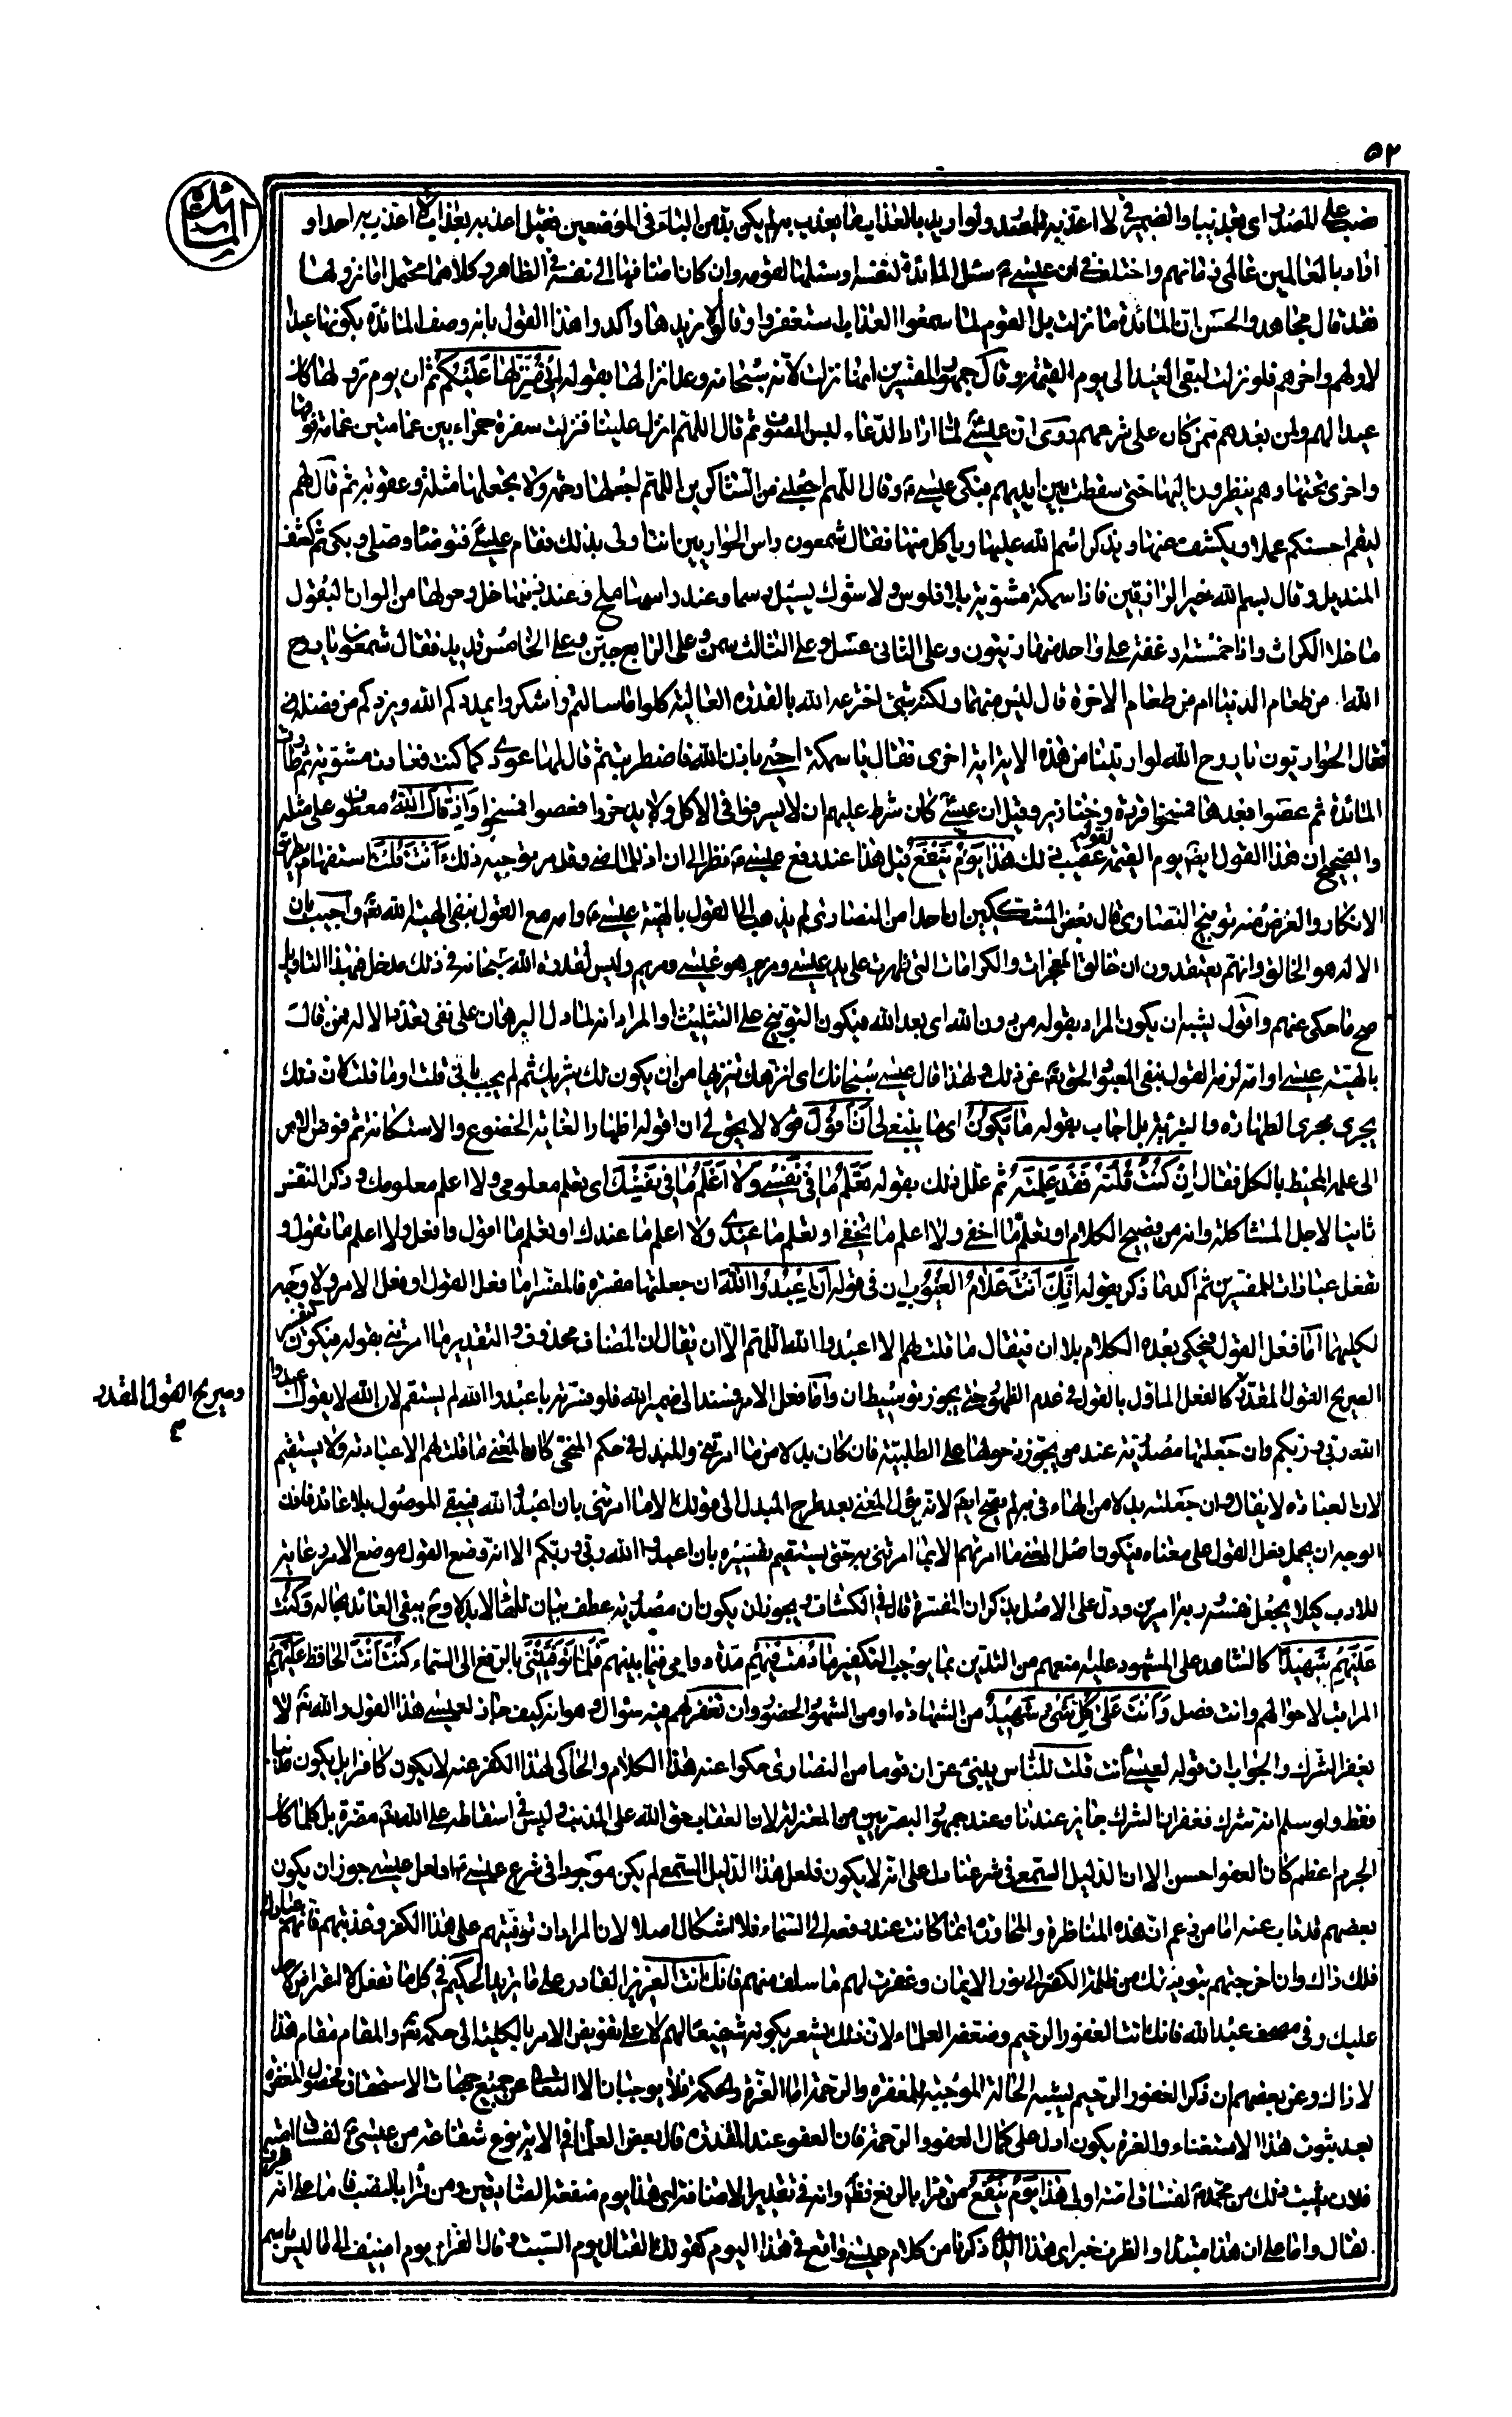 ٥٢
المائدة
نصب على المصدر اى تعذيبا والضمير فى لا اعذبه للمصدر ولو اريد بالعذاب ما يعذب به لم يكن بد من الباء فى الموضعين فقيل اعذبه بعذاب لا اعذب به احدا و
اراد بالعالمين عالمى زمانهم واختلف فى ان عيسى ع سئل المائدة لنفسه او سئلها لقومه وان كان اضافها الى نفسه فى الظاهر وكلاهما محتمل اما نزولها
فقد قال مجاهد والحسن ان المائدة ما نزلت بل القوم لما سمعوا العذاب استغفروا وقالوا لا نريدها واكدوا هذا القول بانه وصف المائدة بكونها عيدا
لاولهم واخرهم فلو نزلت لبقى العيد الى يوم القيمة وقال جمهور المفسرين انها نزلت لانه سبحانه وعد انزالها بقوله انى منزلها عليكم ثم ان يوم نزولها كان
عيدا لهم ولمن بعدهم ممن كان على شرعهم روى ان عيسى لما اراد الدعاء لبس الصوف ثم قال اللهم انزل علينا فنزلت سفرة حمراء بين غمامتين غمامة فوقها
واخرى تحتها وهم ينظرون اليها حتى سقطت بين ايديهم فبكى عيسى ع وقال اللهم اجعلنى من الشاكرين اللهم اجعلها رحمة ولا تجعلها مثلة وعقوبة ثم قال لهم
ليقم احسنكم عملا ويكشف عنها ويذكر اسم الله عليها وياكل منها فقال شمعون راس الحواريين انت اولى بذلك فقام عيسى فتوضأ وصلى وبكى ثم كشف
المنديل وقال بسم الله خير الرازقين فاذا سمكة مشوية بلا فلوس ولا شوك يسيل دسما وعند راسها ملح وعند ذنبها خل وحولها من الوان البقول
ما خلا الكراث واذا خمسة ارغفة على واحد منها زيتون وعلى الثانى عسل وعلى الثالث سمن وعلى الرابع جبن وعلى الخامس قديد فقال شمعون يا روح
الله امن طعام الدنيا ام من طعام الاخرة قال ليس منهما ولكنه شئ اخترعه الله بالقدرة الغالبة كلوا ما سالتم واشكروا يمددكم الله ويزدكم من فضله
فقال الحواريون يا روح الله لو اريتنا من هذه الاية اية اخرى فقال يا سمكة احيى باذن الله فاضطربت ثم قال لها عودى كما كنت فعادت مشوية ثم طارت
المائدة ثم عصوا بعدها فمسخوا قردة وخنازير وقيل ان عيسى كان شرط عليهم ان لا يسرفوا فى الاكل ولا يدخروا فعصوا فمسخوا واذ قال الله معطوف على مثله
والصحيح ان هذا القول ايض يوم القيمة لقوله عقيب ذلك هذا يوم ينفع وقيل هذا عند رفع عيسى ع نظرا الى ان اذ للماضى وقد مر توجيه ذلك أأنت قلت استفهام بطريق
الانكار والغرض منه توبيخ النصارى قال بعض المشككين ان احدا من النصارى لم يذهب الى القول بالهية عيسى ع وامه مع القول بنفى الهية الله تع واجيب بان
الاله هو الخالق وانهم يعتقدون ان خالق المعجزات والكرامات التى ظهرت على يد عيسى ومريم هو عيسى ومريم وليس لقدرة الله سبحانه فى ذلك مدخل فبهذا التاويل
صح ما حكى عنهم واقول يشبه ان يكون المراد بقوله من دون الله اى بعد الله فيكون التوبيخ على التثليث او المراد انه لما دل البرهان على نفى تعدد الاله فمن قالت
بالهية عيسى او امه لزمه القول بنفى المعبود الحق تع عن ذلك ولهذا قال عيسى سبحانك اى انزهك تنزيها من ان يكون لك شريك ثم لم يجب بانى قلت او ما قلت لان ذلك
يجرى مجرى الطهارة والبرائة بل اجاب بقوله ما يكون اى ما ينبغى لى ان اقول قولا لا يحق لى ان اقوله اظهارا لغاية الخضوع والاستكانة ثم فوض الامر
الى علمه المحيط بالكل فقال ان كنت قلته فقد علمته ثم علل ذلك بقوله تعلم ما فى نفسى ولا اعلم ما فى نفسك اى تعلم معلومى ولا اعلم معلومك وذكر النفس
ثانيا لاجل المشاكلة وانه من فصيح الكلام او تعلم ما اخفى ولا اعلم ما تخفى او تعلم ما عندى ولا اعلم ما عندك او تعلم ما اقول وافعل ولا اعلم ما تقول و
تفعل عبارات للمفسرين ثم اكد ما ذكر بقوله انك انت علام الغيوب ان فى قوله ان اعبدوا الله ان جعلتها مفسرة فالمفسر اما فعل القول او فعل الامر ولا وجه
لكليهما اما فعل القول فيحكى بعده الكلام بلا ان فيقال ما قلت لهم الا اعبدوا الله اللهم الا ان يقال ان المضاف محذوف والتقدير ما امرتنى بقوله فيكون كتفسير
الصريح القول المقدر كالفعل الماول بالقول فى عدم الظهور حتى يجوز توسيط ان واما فعل الامر فسند الى ضمير الله فلو فسرته باعبدوا الله لم يستقم لان الله لا يقول اعبدوا
وصريح القول المقدر
الله ربى وربكم وان جعلتها مصدرية عند من يجوز دخولها على الطلبية فان كان بدلا من ما امرتنى والمبدل فى حكم المنحى كان المعنى ما قلت لهم الا عبادته ولا يستقيم
لان العبادة لا يقال وان جعلته بدلا من الهاء فى به لم يصح ايض لانه يؤل المعنى بعد طرح المبدل الى قولك الا ما امرتنى بان اعبدوا الله فيبقى الموصول بلا عائد فاذن
الوجه ان يحمل فعل القول على معناه فيكون اصل المعنى ما امرتهم الا بما امرتنى به حتى يستقيم تفسيره بان اعبدوا الله ربى وربكم الا انه وضع القول موضع الامر رعاية
للادب كيلا يجعل نفسه وربه امرين ودل على الاصل بذكر ان المفسرة قال فى الكشاف ويجوز ان يكون ان مصدرية عطف بيان للهاء لا بدلا وح يبقى العائد بحاله وكنت
عليهم شهيدا كالشاهد على المشهود عليه منعهم من التدين بما يوجب التكفير ما دمت فيهم مدة دوامى فيما بينهم فلما توفيتنى بالرفع الى السماء كنت انت الحافظ عليهم
المراقب لاحوالهم وانت فصل وانت على كل شئ شهيد من الشهادة او من الشهود الحضور وان تغفر لهم فيه سؤال وهو انه كيف جاز لعيسى هذا القول والله تع لا
يغفر الشرك والجواب ان قوله لعيسى أأنت قلت للناس يبنى عن ان قوما من النصارى حكوا عنه هذا الكلام والحاكى لهذا الكفر عنه لا يكون كافرا بل يكون مذنبا
فقط ولو سلم انه شرك فغفران الشرك جايز عندنا وعند جمهور البصريين من المعتزلة لان العقاب حق الله على المذنب وليس فى اسقاطه على الله تع مضرة بل كلما كان
الجرم اعظم كان العفو احسن الا ان الدليل السمعى فى شرعنا دل على انه لا يكون فلعل هذا الدليل السمعى لم يكن موجودا فى شرع عيسى ع او لعل عيسى جوز ان يكون
بعضهم قد تاب عنه اما من زعم ان هذه المناظرة والمحاورة انما كانت عند رفعه الى السماء فلا اشكال اصلا لان المراد ان توفيتهم على هذا الكفر وعذبتهم فانهم عبادك
فلك ذاك وان اخرجتهم بتوفيقك من ظلمة الكفر الى نور الايمان وغفرت لهم ما سلف منهم فانك انت العزيز القادر على ما تريد الحكيم فى كل ما تفعل لا اعتراض لاحد
عليك وفى مصحف عبد الله فانك انت الغفور الرحيم وضعفه العلماء لان ذلك يشعر بكونه شفيعا لهم لا على تفويض الامر بالكلية الى حكمه تع والمقام مقام هذا
لا ذاك وعن بعضهم ان ذكر الغفور الرحيم يشبه الحالة الموجبة للمغفرة والرحمة اما العزة والحكمة فلا يوجبان الا التعالى عن جميع جهات الاستحقاق فحصول المغفرة
بعد ثبوت هذا الاستغناء والعزة يكون ادل على كمال العفو والرحمة فان العفو عند المقدرة قال بعض العلماء فى الاية نوع شفاعة من عيسى ع لفساق امته
فلان يثبت ذلك من محمد ص لفساق امته اولى هذا يوم ينفع من قرأ بالرفع فظ وانه فى تقدير الاضافة اى هذا يوم منفعة الصادقين ومن قرأ بالنصب فاما على انه ظرف
لقال واما على ان هذا مبتدا والظرف خبر اى هذا الذى ذكرنا من كلام عيسى واقع فى هذا اليوم كقولك القتال يوم السبت وقال الفراء يوم اضيف الى ما ليس باسم